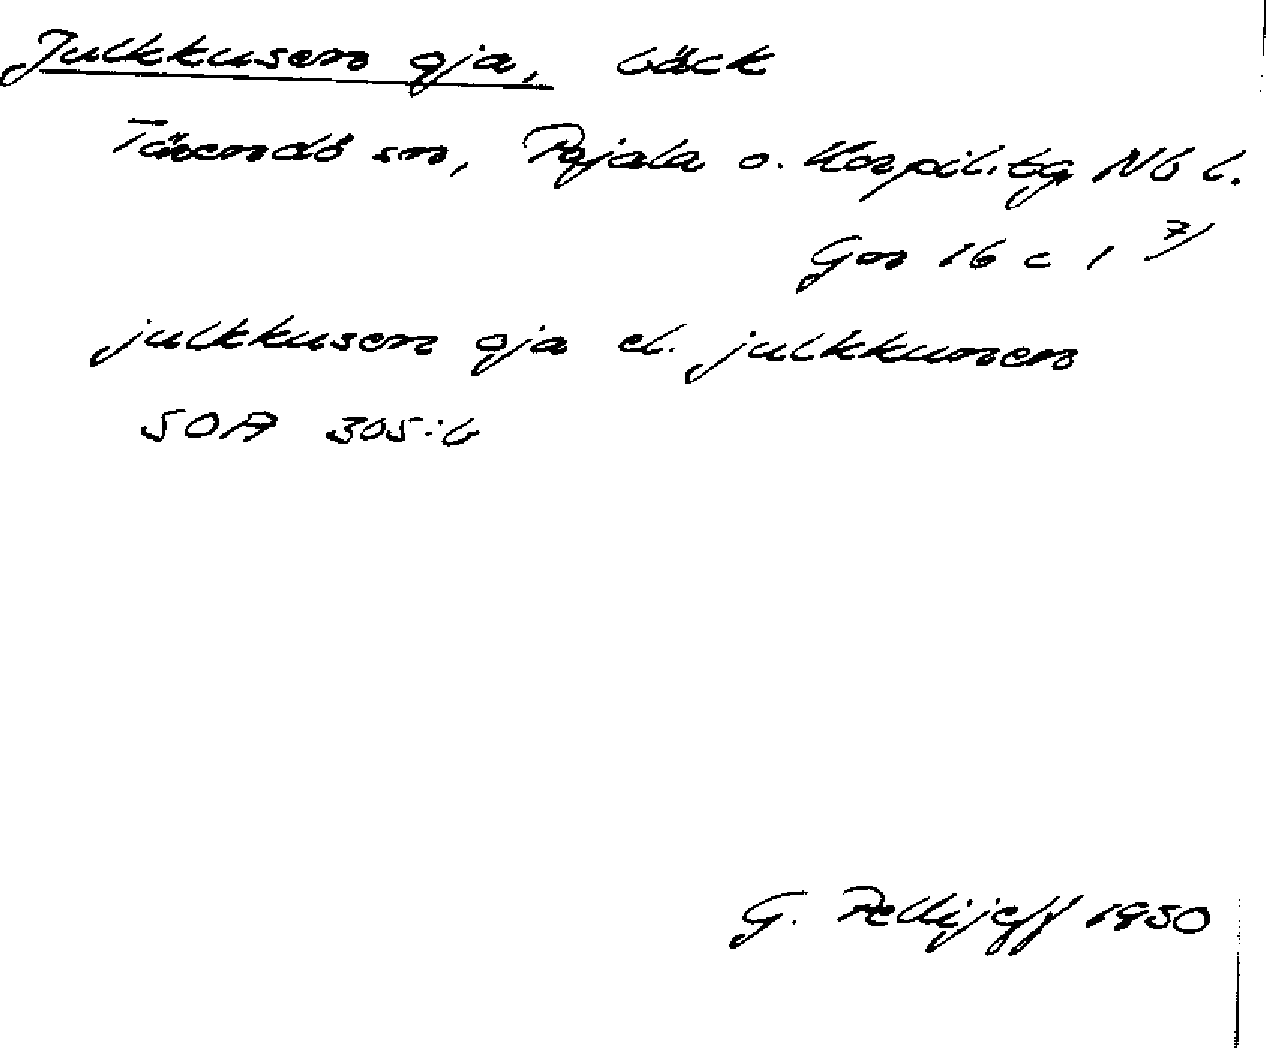 Julkkusen oja, bäck
Tärendö sn, Pajala o. Korpil. tg Nb l.
Gm 16 c 1 7)
julkkusen oja el. julkkunen
SOA 305:6
G. Pellijeff 1950